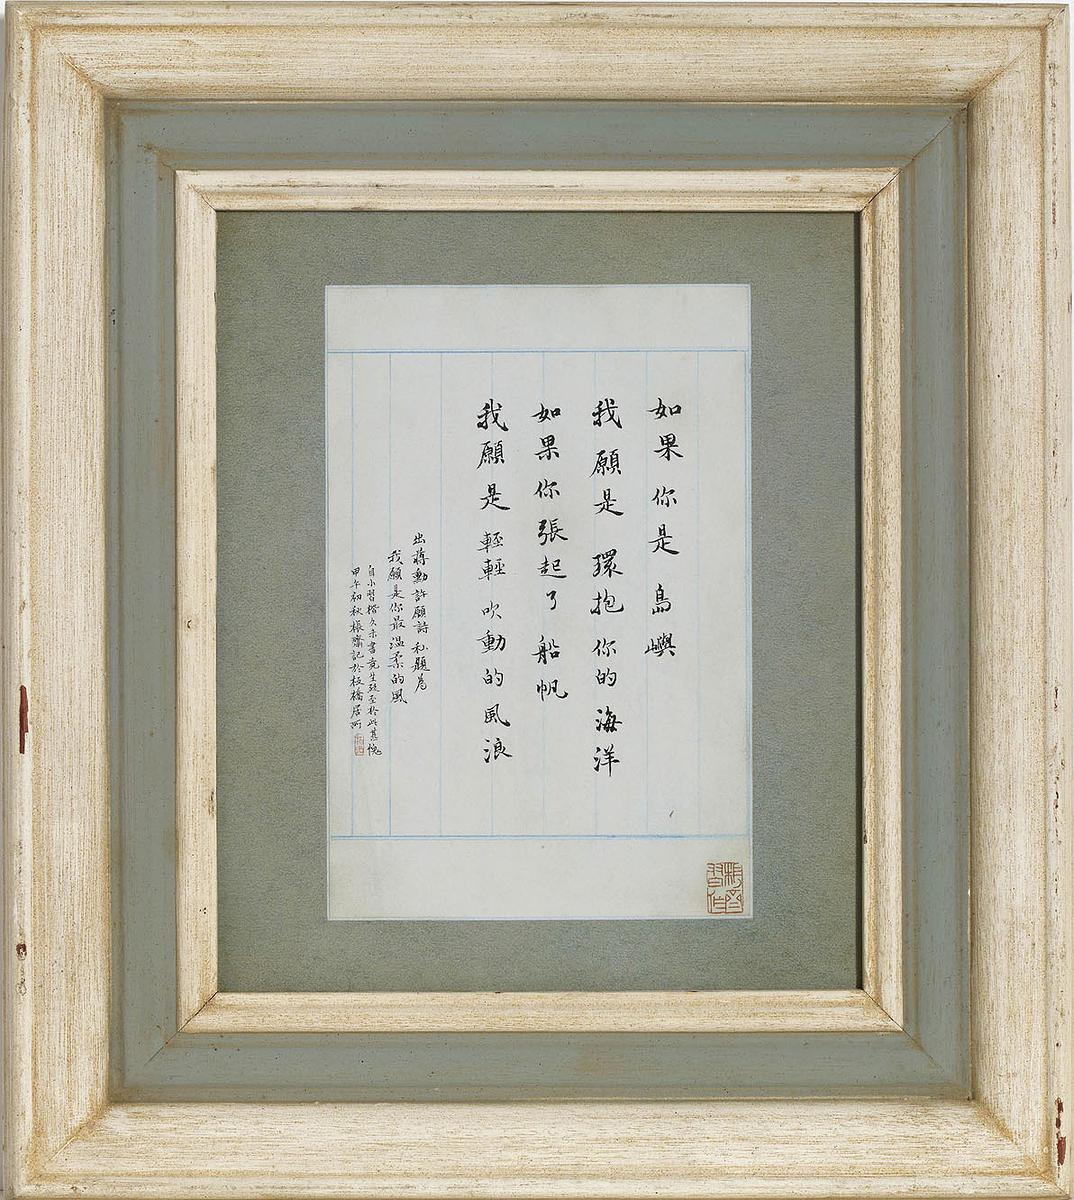 如果你是 島嶼
我願是 環抱 你的海洋
如果你張起了船帆
我願是 輕輕 吹動的風浪
出蔣勳許願詩 私題為
我願是你最溫柔的風
自小習楷久未書竟生疏至於此甚愧
甲午初秋 齋記於板橋居所
習作